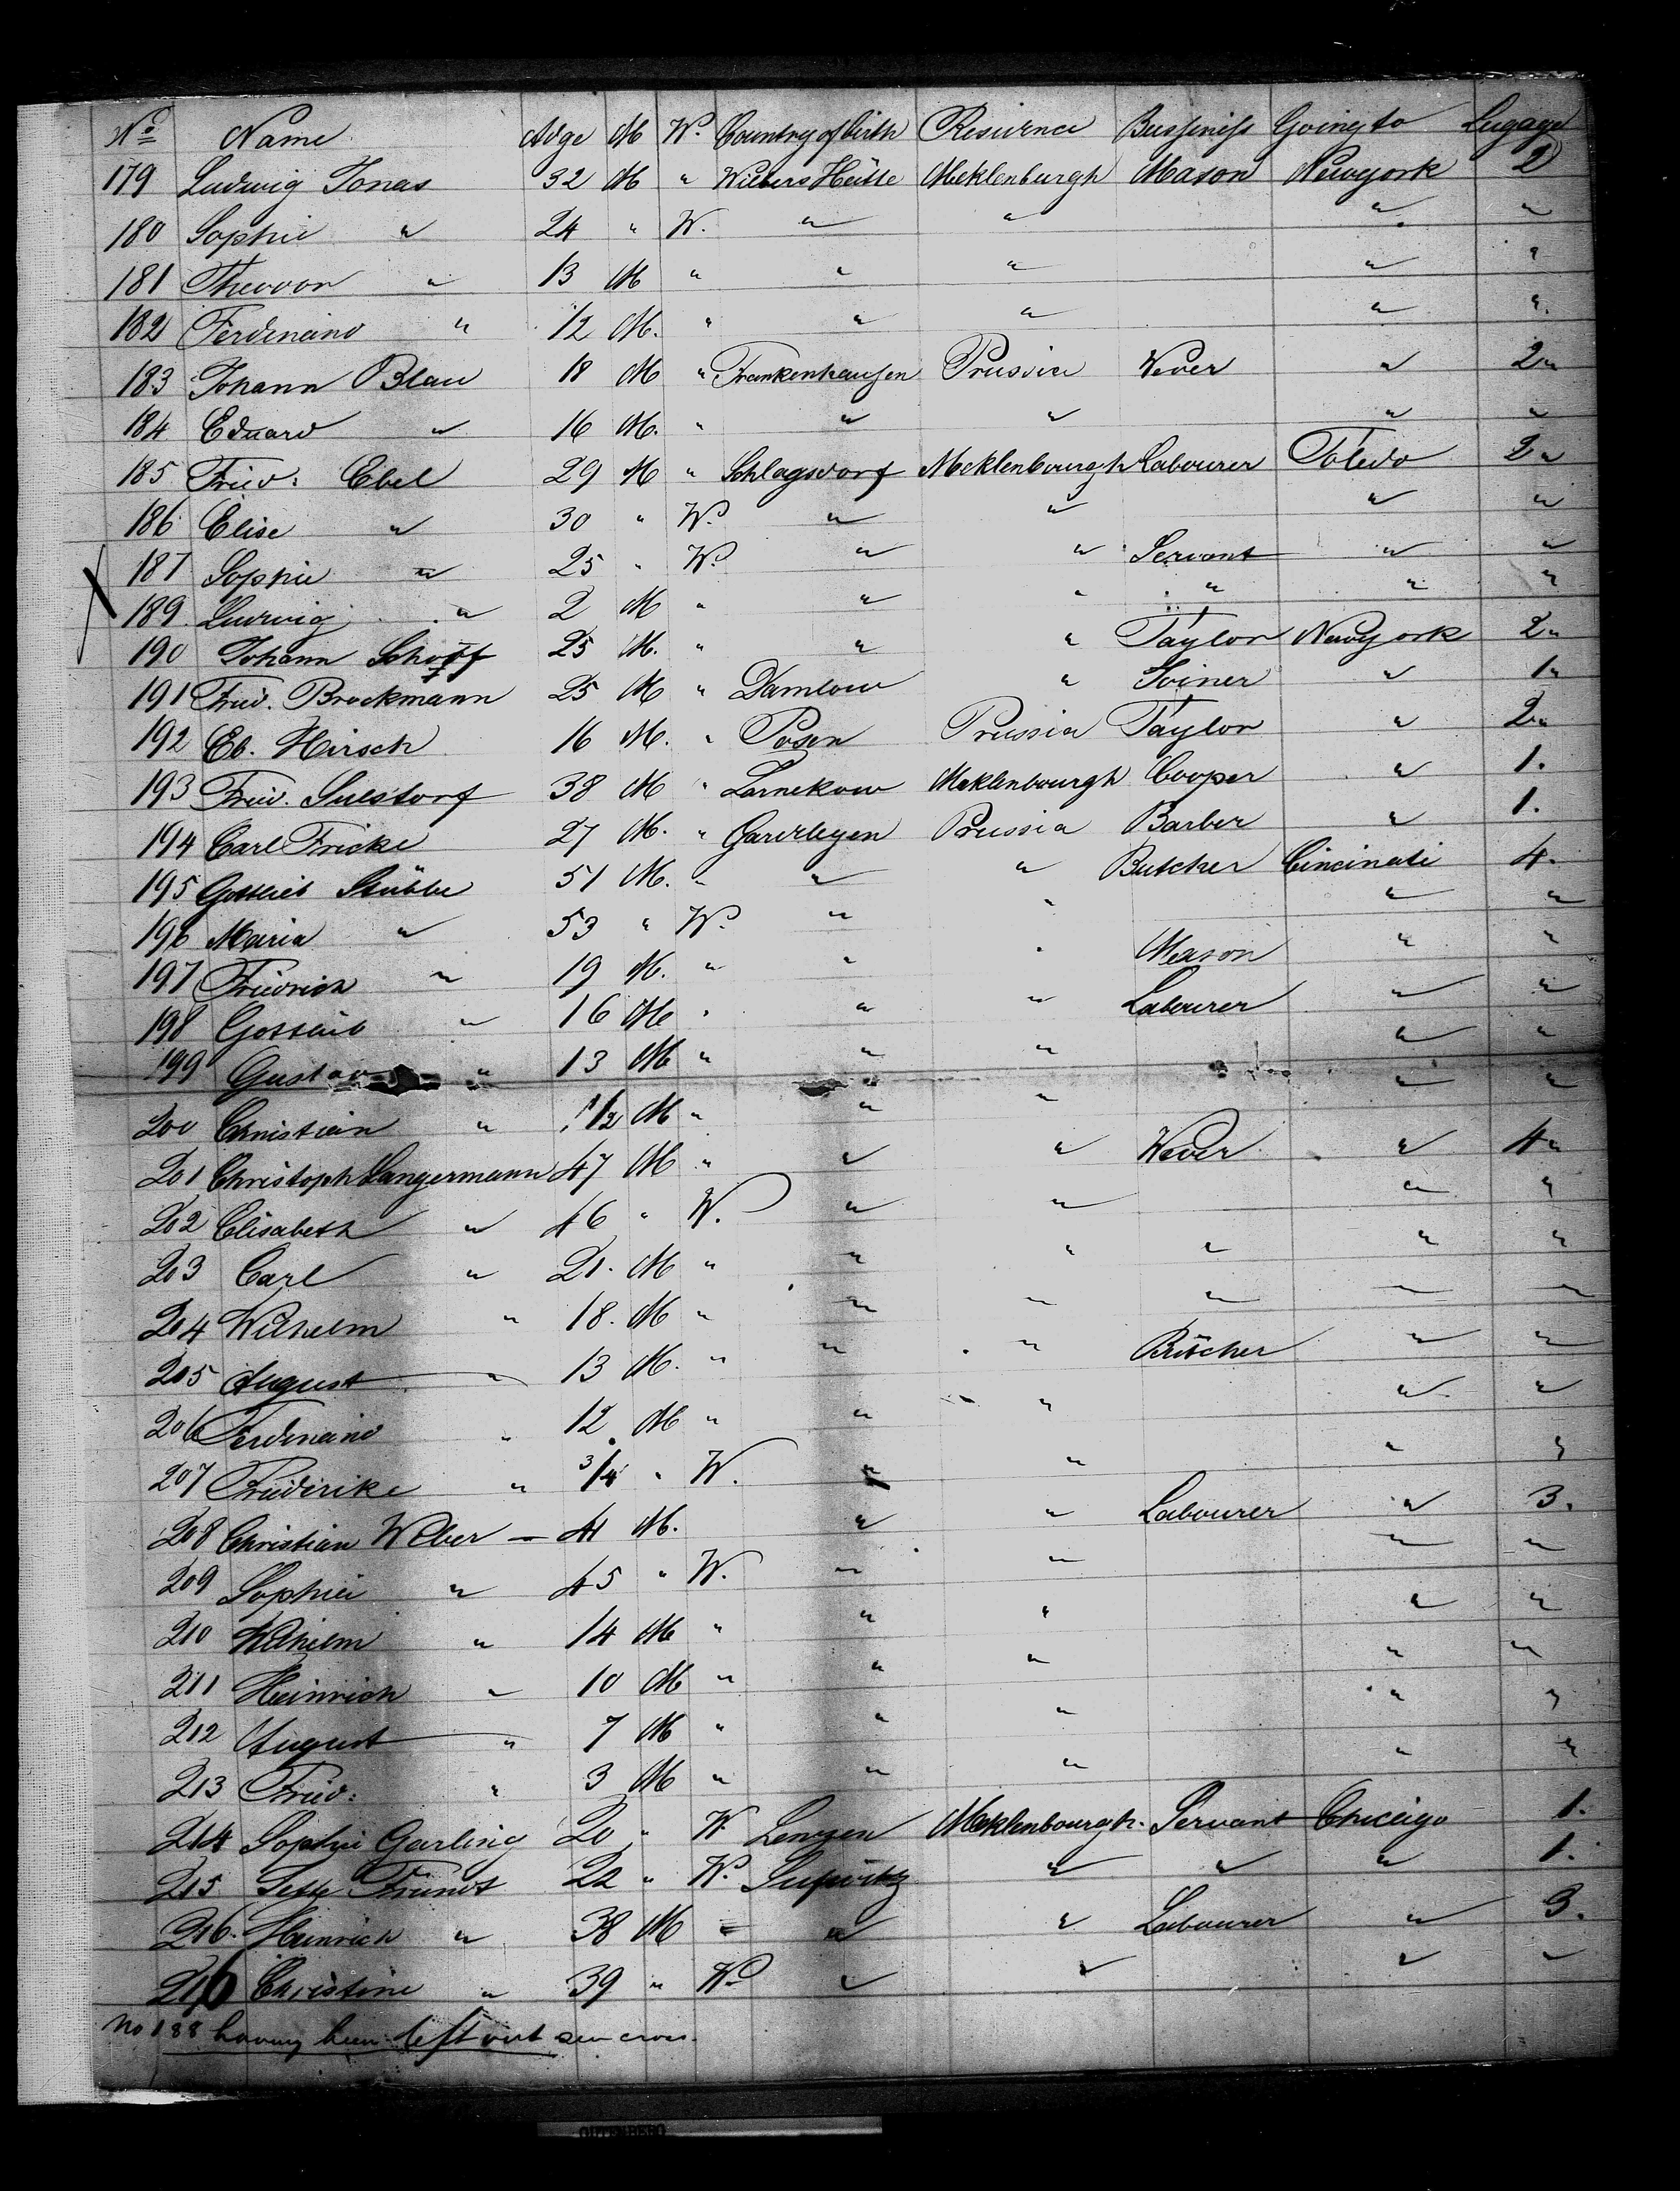 No Name Adge M W. Country of birth Resience Bussiness Going to Lugage
179 Ludwig Jonas 32 M " Wiebers Hütte Meklenburgh Mason Newyork 2
180 Sophie " 24 " W. " " " "
181 Theodor " 13 M " " " " "
182 Ferdinand " 12 M. " " " " "
183 Johann Blau 18 M " Frankenhausen Prussia Wever " 2 "
184 Eduard " 16 M. " " " " "
185 Fried: Ebel 29 M " Schlagsdorf Meklenbourgh Labourer Toledo 2 "
186 Elise " 30 " W. " " " "
187 Sophie " 25 " W. " " Servant " "
189. Ludwig " 2 M " " " " " "
190 Johann Schoff 25 M. " " " Taylor Newyork 2 "
191 Fried. Brockmann 25 M " Damlow " Joiner " 1 "
192 Eb. Hirsch 16 M. " Posen Prussia Taylor " 2 "
193 Fried. Sulstorf 38 M " Larnekow Meklenbourgh Cooper " 1.
194 Carl Fricke 27 M. " Gardelegen Prussia Barber " 1.
195 Gottlieb Stübbe 51 M. " " " Butcher Cincinati 4.
196 Maria " 53 " W. " " " "
197 Friedrich " 19 M. " " " Mason " "
198 Gottlieb " 16 M " " " Labourer " "
199 Gustav " 13 M " " " " "
200 Christian " 1/2 M " " " " "
201 Christoph Langermann 47 M " " " Wever " 4 "
202 Elisabeth " 46 " W. " " " "
203 Carl " 21. M " " " " " "
204 Wilhelm " 18. M " " " " " "
205 August " 13 M. " " " Bütcher " "
206 Ferdinand " 12 M " " " " "
207 Friederike " 3/4 " W. " " " "
208 Christian Weber - 41 M. " " Labourer " 3.
209 Sophie " 45 " W. " " " "
210 Wilhelm " 14 M " " " " "
211 Heinrich " 10 M " " " " "
212 August " 7 M " " " " "
213 Fried: " 3 M " " " " "
214 Sophie Garling 20 " W Lenzen Meklenbourgh. Servant Chicago 1.
215 Frundt 22 " W. " " " 1.
216. Heinrich " 38 M " " " Labourer " 3.
216 Christine " 39 " W " " " "
No 188 having been left out